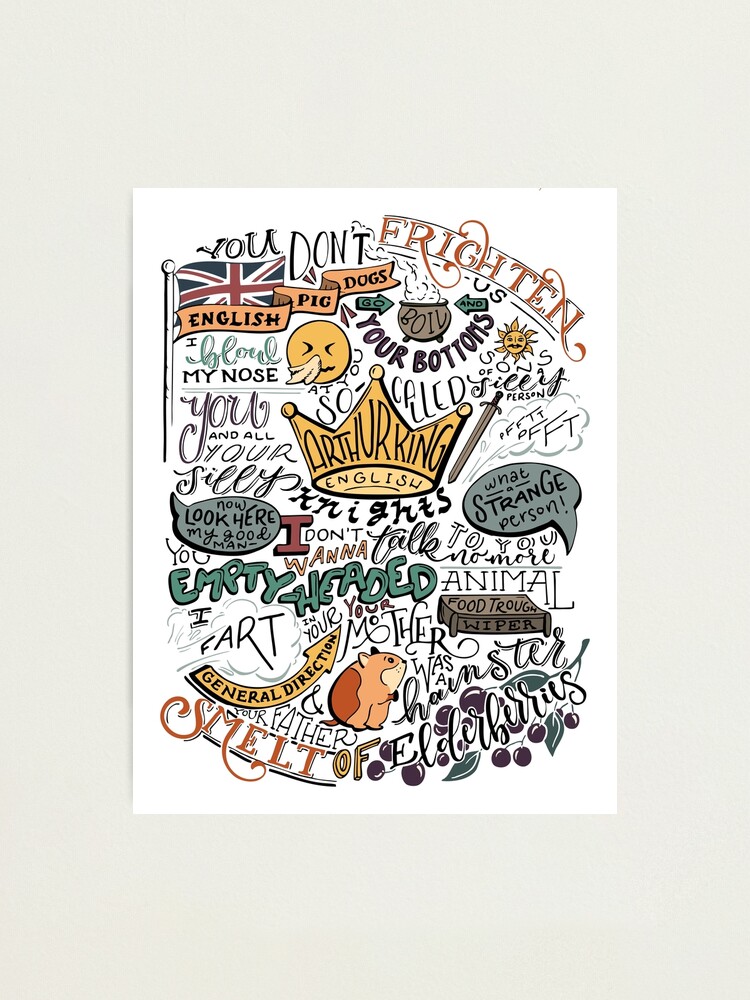 YOU DON'T FRIGHTEN
US
ENGLISH PIG DOGS
GO AND
BOIL
YOUR BOTTOMS
SONS
OF A
Silly
PERSON
I blow
MY NOSE
AT YOU
SO-CALLED
ARTHUR KING
YOU
AND ALL
YOUR
Silly
ENGLISH
knights
PFFTT
PFFT
what
a
STRANGE
person!
now
LOOK HERE
my good
MAN-
I DON'T
WANNA talk
TO YOU
no more
YOU
EMPTY-HEADED
ANIMAL
FOOD TROUGH
WIPER
I
FART
IN
YOUR
GENERAL DIRECTION
YOUR
MOTHER
WAS
A
hamster
&
YOUR FATHER
SMELT OF Elderberries